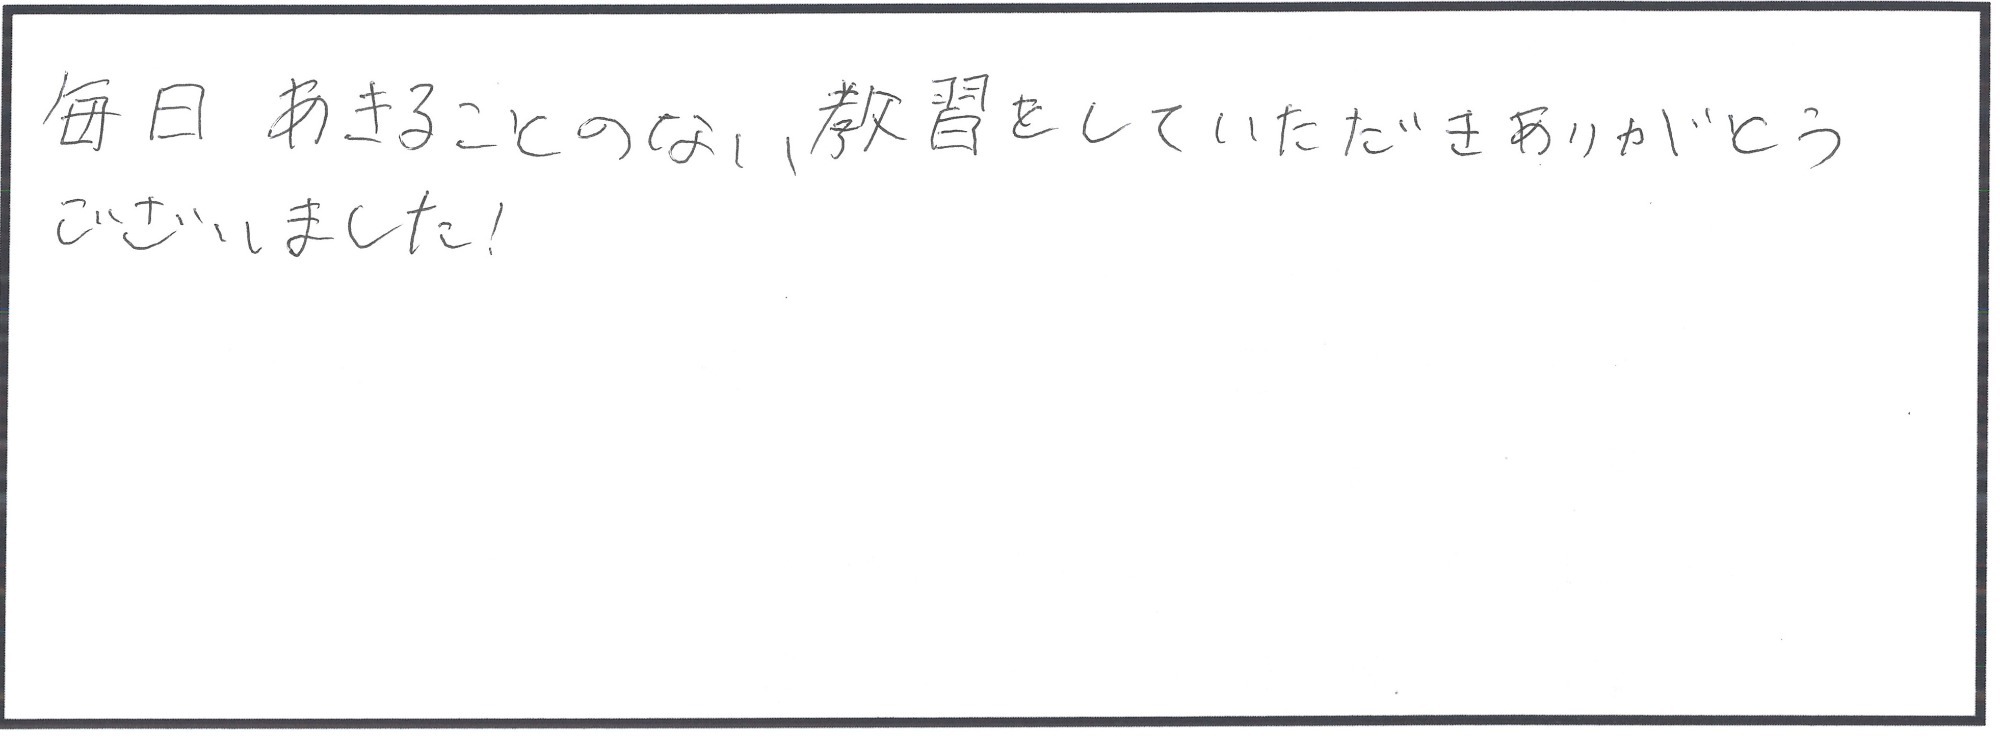 毎日 あきることのない教習をしていただきありがとう
ございました!